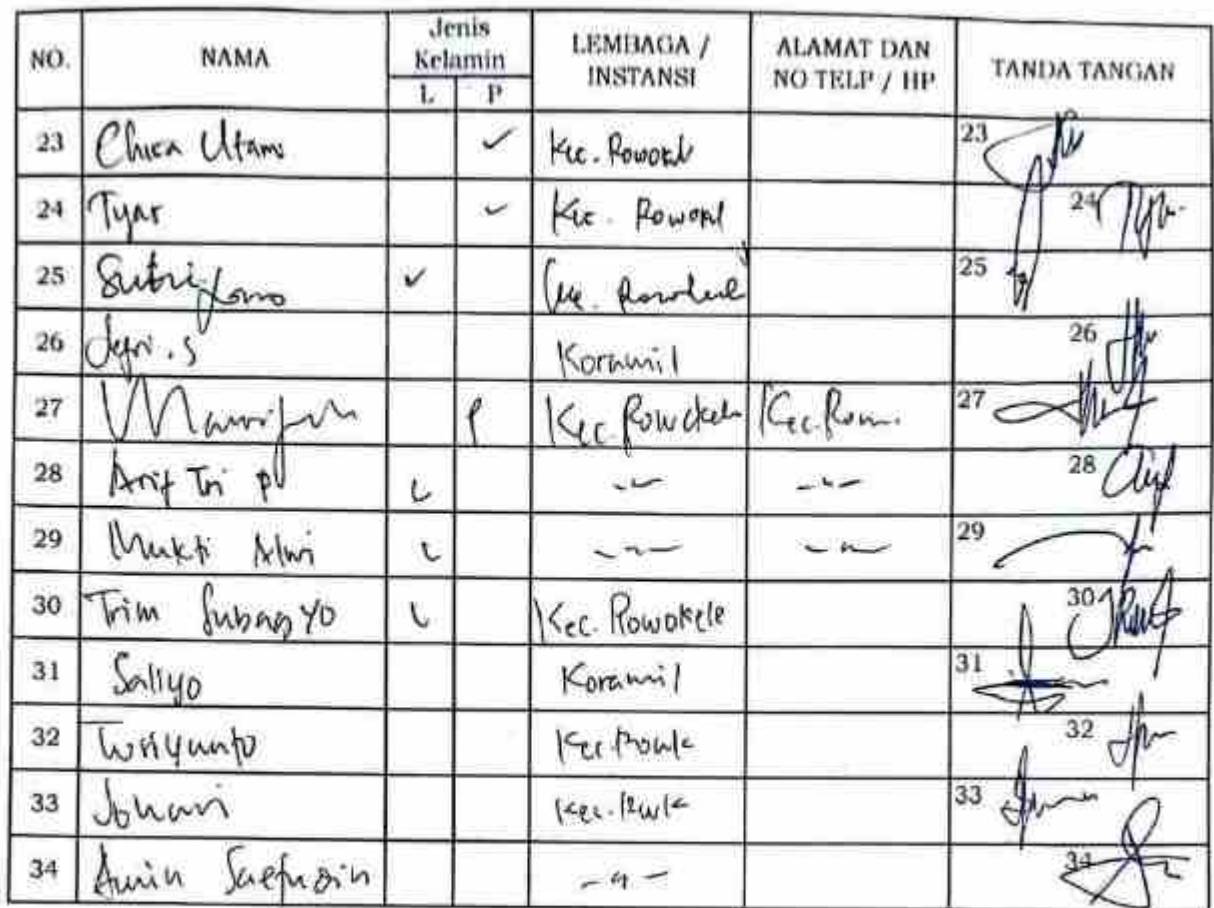 NO. NAMA Jenis Kelamin LEMBAGA / INSTANSI ALAMAT DAN NO TELP / HP TANDA TANGAN
L P
23 Chica Utami ✓ Kec. Rowokel 23
24 Tyar ✓ Kec. Rowokel 24
25 Sutriyono ✓ Kec. Rowokele 25
26 Jefri . S Koramil 26
27 P Kec. Rowokele Kec. Row. 27
28 Arif Tri P L -〃- -〃- 28
29 Mukti Alwi L -〃- -〃- 29
30 Trim Subagyo L Kec. Rowokele 30
31 Saliyo Koramil 31
32 Kec. Rowk 32
33 Johari Kec. Rwk 33
34 Amin Saefudin -〃- 34